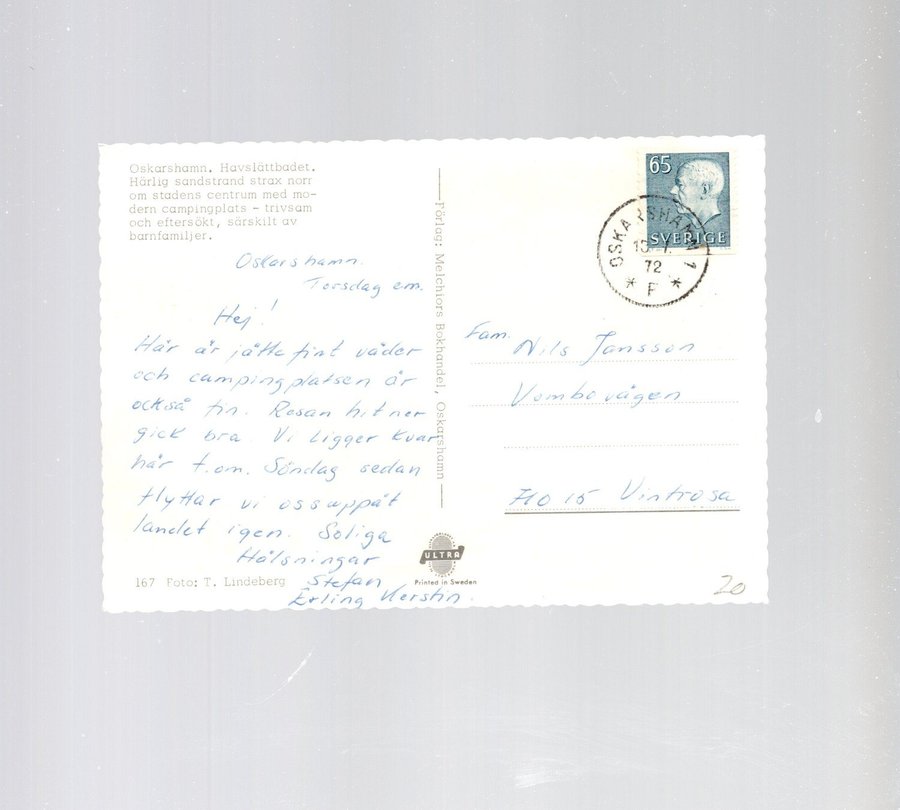 Oskarshamn. Havslättbadet.
Härlig sandstrand strax norr
om stadens centrum med mo-
dern campingplats - trivsam
och eftersökt, särskilt av
barnfamiljer.
Oskarshamn.
Torsdag em.
Hej!
Här är jätte fint väder
och campingplatsen är
också fin. Resan hit ner
gick bra. Vi ligger kvar
här t.om. Söndag sedan
flyttar vi oss uppåt
landet igen. Soliga
Hälsningar
Stefan
Erling Kerstin.
167 Foto: T. Lindeberg
Förlag: Melchiors Bokhandel, Oskarshamn
ULTRA
Printed in Sweden
65
SVERIGE
OSKARSHAMN 1
72
* F *
Fam. Nils Jansson
Vombovägen
710 15 Vintrosa
20